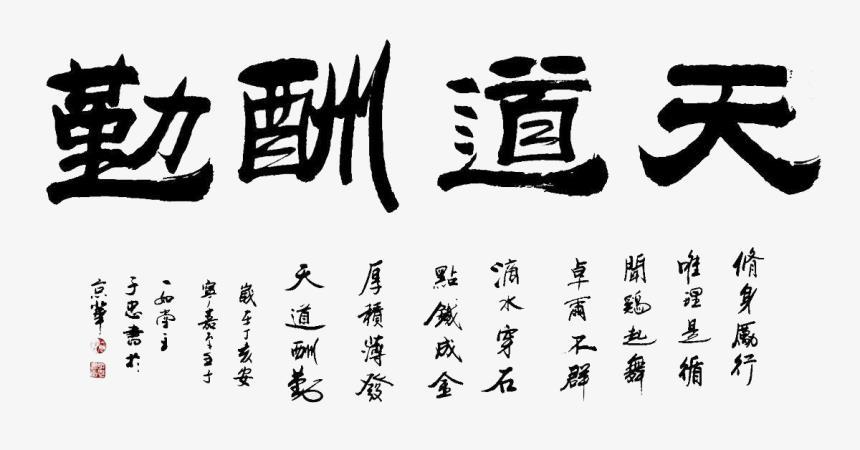 天道酬勤
脩身勵行
唯理是循
聞鷄起舞
卓爾不群
滴水穿石
點鐵成金
厚積薄發
天道酬勤
歲在丁亥安
寧嘉
一如堂主
于忠書於
京華